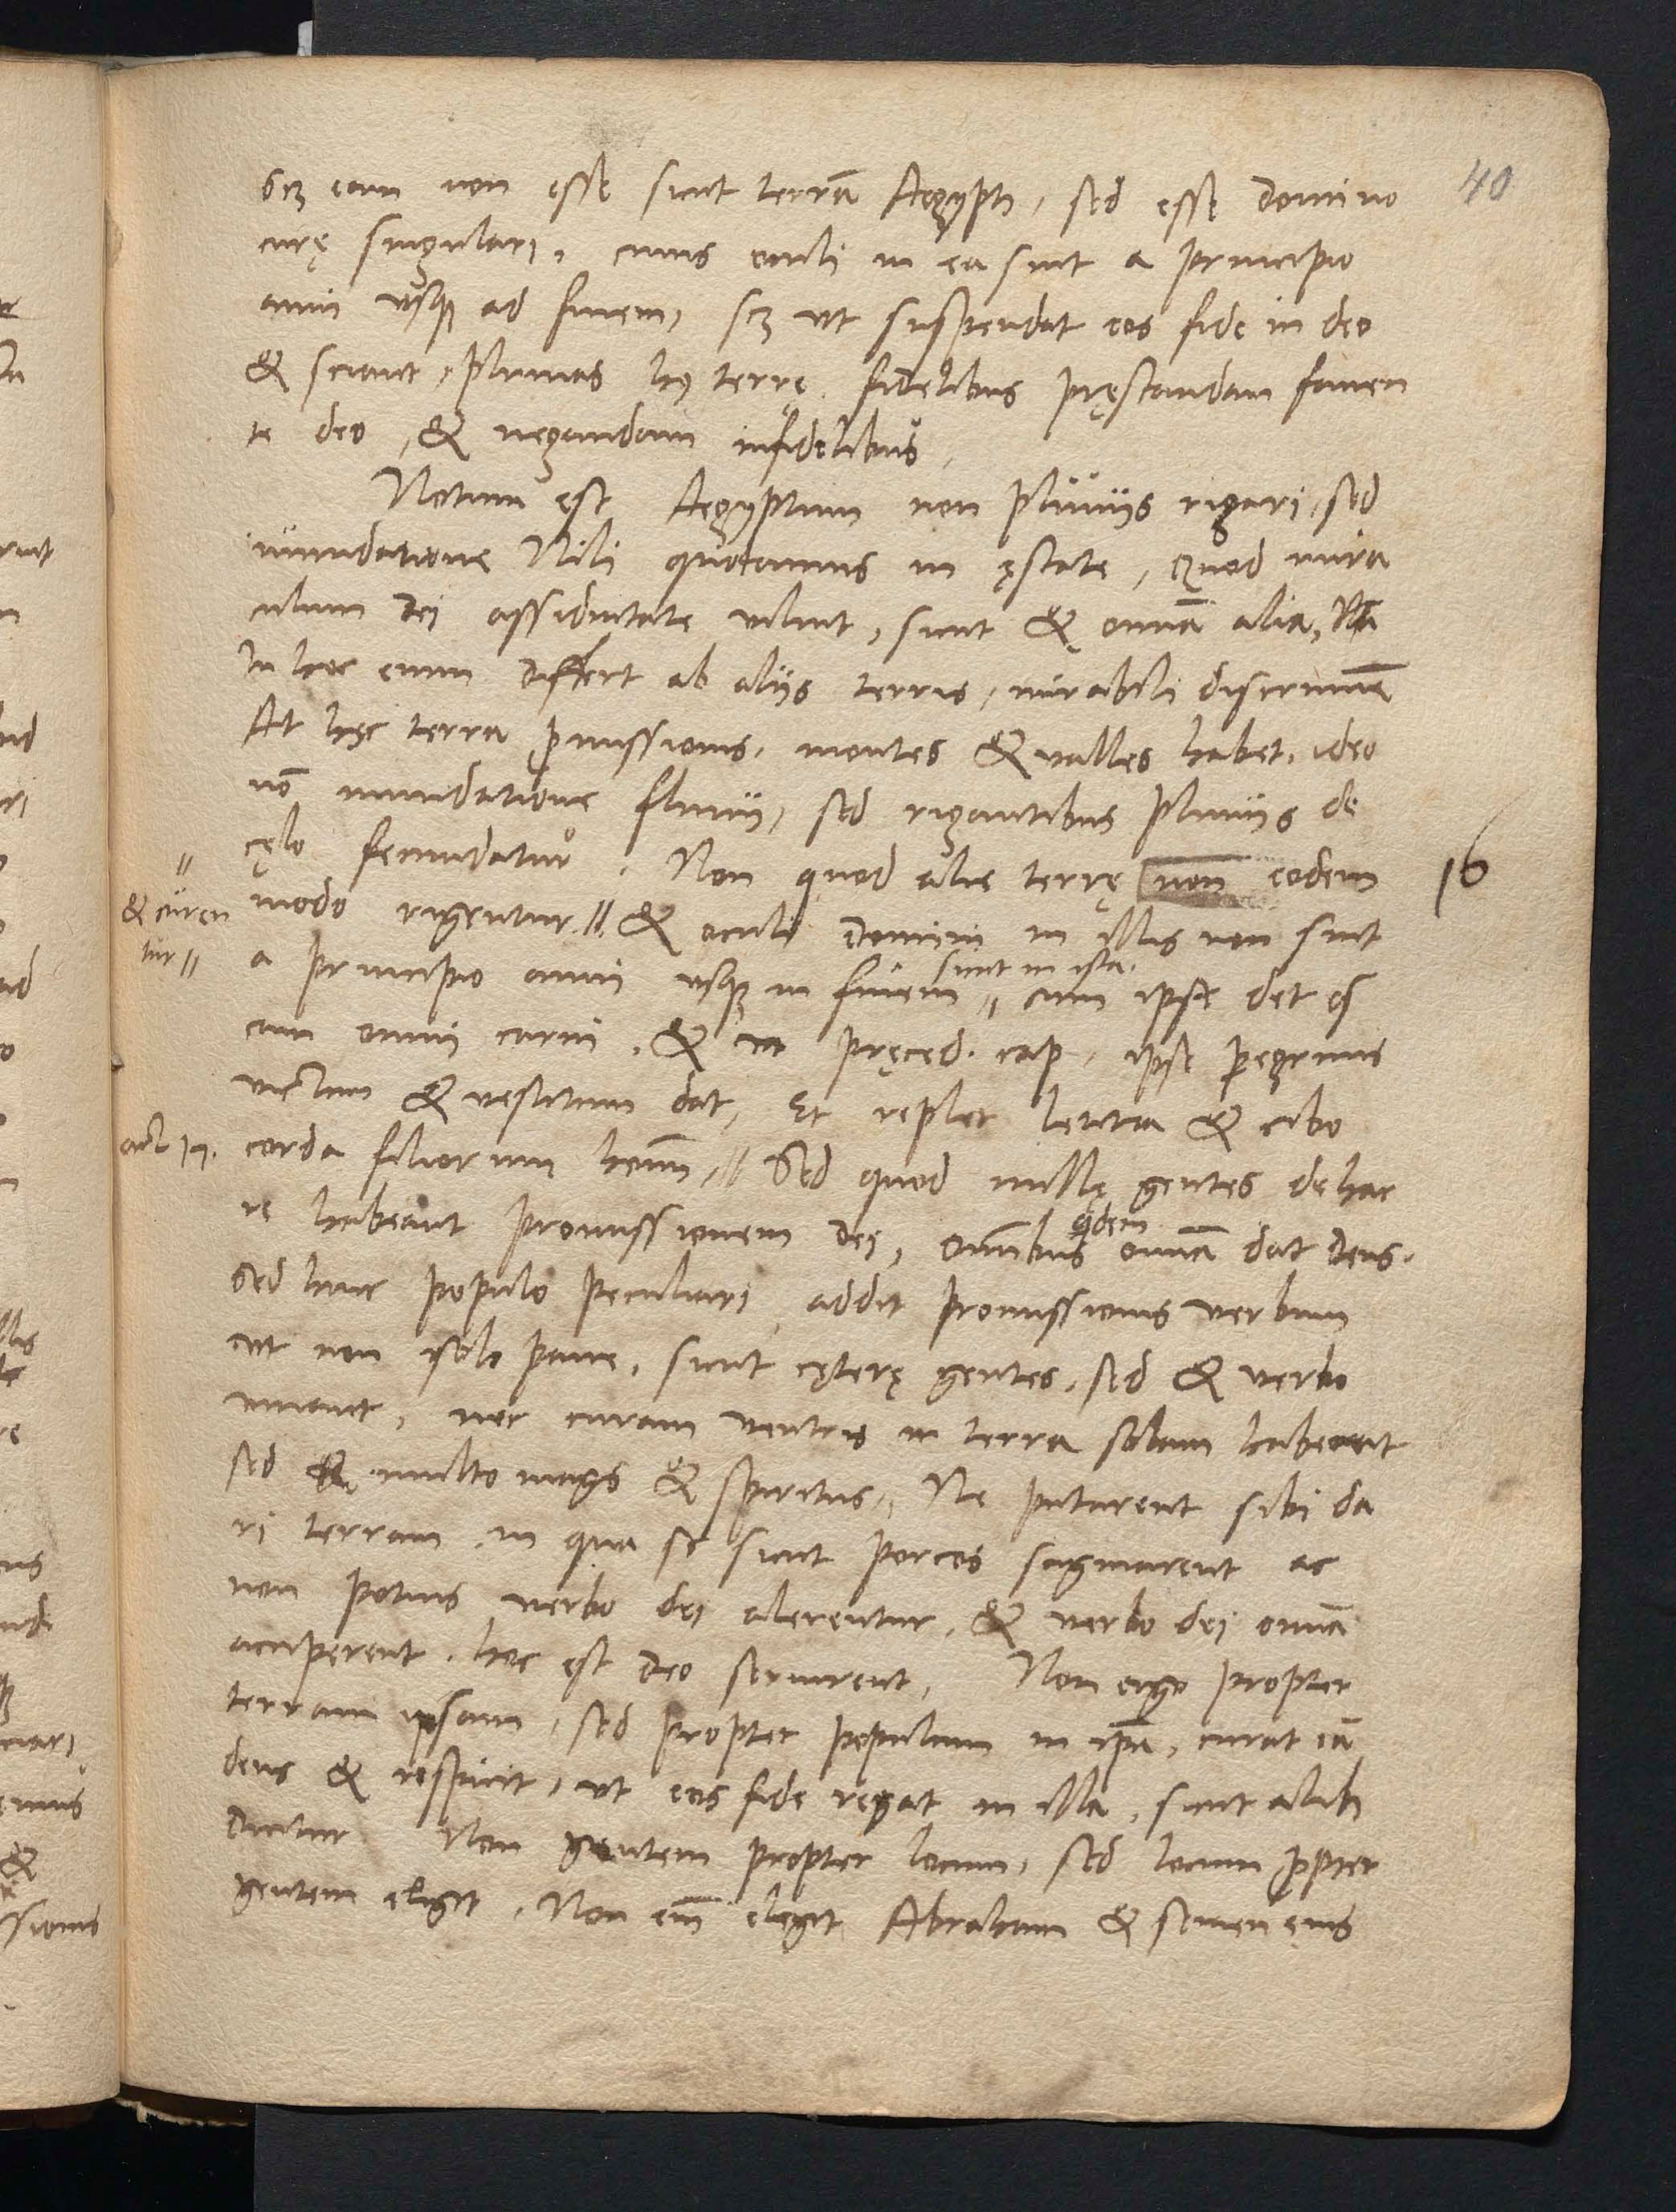 40
scz eam non esse sicut terrā Aegypti, sed esse Domino
curę singulari, cuius oculi in ea sint a principio
anni usq; ad finem, scz ut suspendat eos fide in deo
& sciant, pluuias hui9 terrę fidelibus pręstandam fauen
te deo, & negandam infidelibus,
Notum est Aegyptum non pluuiis rigari, sed
inundatione Nili quotannis in ęstate, Quod mira
culum Dei assiduitate uiluit, sicut & omnia alia,
In hoc enim differt ab aliis terris, mirabili discrimine
At hęc terra p̄missionis, montes & ualles habet, ideo
nō inundatione fluuii, sed rigantibus pluuiis de
cęlo fecundatur. Non quod alie terrę non eodem
16
modo rigentur // & oculi Domini in illis non sint
// & curen
tur //
a principio anni usq; in finem // cum ipse det es
sicut in ista.
cam omni carni, & in pręced. cap, ipse peregrinis
uictum & uestitum dat, Et replet letitia & cibo
act 14. corda filiorum homī, // Sed quod nullę gentes de hac
re habeant promissionem dei, omnibus omnia dat deus.
qdem
Sed huic populo peculiari addit promissionis uerbum
ut non solo pane, sicut cęterę gentes, sed & uerbo
uiuant, nec curam uentris in terra solam haberent
sed & multo magis & spiritus, Ne putarent sibi da
ri terram in qua se sicut porcos saginarent ac
non potius uerbo dei alerentur, & uerbo dei omnia
acciperent, hoc est deo seruirent, Non ergo propter
terram ipsam, sed propter populum in ipa, curat eā
deus & respicit, ut eos fide regat in illa, sicut alibi
dicitur Non gentem propter locum, sed locum ppter
gentem elegit, Non eīm elegit Abraham & semen eius